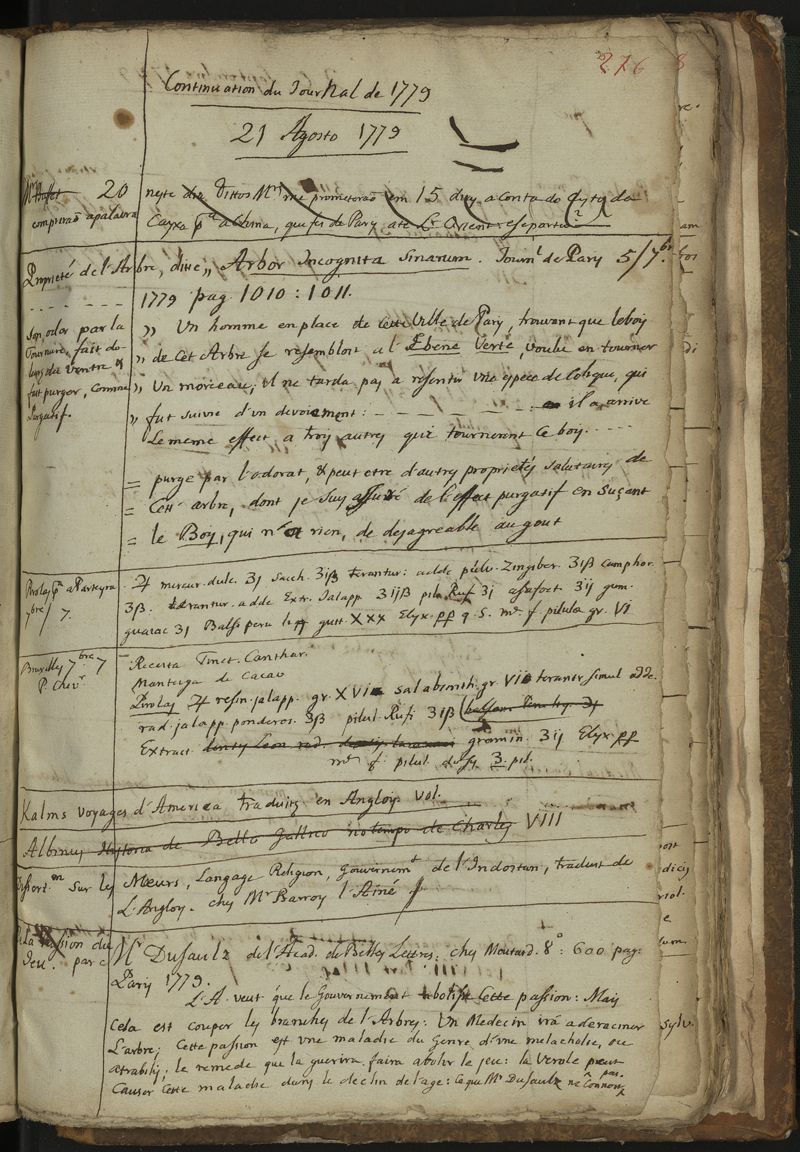 276
Continuation du Journal de 1779
21 Agosto 1779
20 neste dia dittos Mrs me prometerão em 15 dias, a conta do
compreraõ apalavra
Cayxa pa a China, que foi de Pary até L'Orient
Proprieté de l'Arbre, dive,, Arbor Incognita Sinarum. Journl de Pary 5/7.br
1779 pag 1010 : 1011.
Son odor par la
Tournure, fait do-
lors du Ventre &
fait purger, comme
Purgatif.
,, Un homme en place de Cette Ville de Pary, trouvant que le boy
,, de Cet Arbre se resembloit a l'Ebene Verte, voulu en tourner
,, Un morceau; il ne tarda pas a resentir une espece de Colique, qui
,, fut suivie d'un devoiement : — — — : il a arrive
Le meme effect a troy autres qui tournerent Ce boy. ....
= purge par l'odorat, & peut etre d'autres proprietés salutairy de
= Cett arbre, dont je suy assuré de l'effect purgatif en suçant
= le Boy, qui n'a rien, de desagreable au gout
Pirolas pa a Parteyra
7bre/ 7.
♃ mercur. dulc. ʒj sacch. ʒiß terantur: adde pulv. Zingiber. ʒiß camphor.
ʒß. terantur. adde Extr. Jalapp ʒijß pil. Ruf ʒj assafoet ʒij gum.
guaiac ʒj Bals peru gutt XXX Elyx. pp q. S. me f. pilulae gr. VI
Bruxelles 7bre 7
P. Chevr
Receita Tinct. Canthar.
Manteiga de Cacao
Pirolas ♃ resin. jalapp. gr. XVI sal absinth. gr. VII terantr simul adde.
rad. jalapp. ponderos. ʒß pilul. Rufi ʒiß
Extract. gramin. ʒij Elyx. pp
me f. pilul. ʒ. pil.
Kalms Voyages d'America traduits en Angloy Vol.
Albinus Historia de Bello Gallico no tempo de Charles VIII
Dissertn sur les Mœurs, Langage Religion, Gouvernemt de l'Indostan, traduit de
L'Angloy. chez Mr Barroy l'Ainé
La passion du
Jeu. par
Mr Dusaulx de l'Acad. de Belles Lettres: chez Moutard. 8°: 600 pag:
Pary 1779.
L'A. veut que le Gouvernement abolisse Cette passion: Mais
Cela est couper les branches de l'Arbre: Un Medecin ira a deraciner
L'arbre; Cette passion est une maladie du Genre d'une melacholie, ou
atrabilis; le remede que la guerira, faira abolir le jeu: la Verole peut
Causer Cette maladie dans le declin de l'age: Ce que Mr Dusaulx ne Connoit pas.